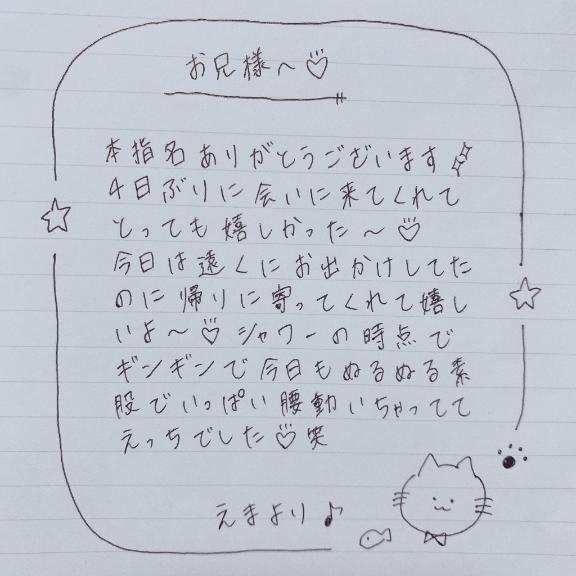 お兄様～♡
本指名ありがとうございます
4日ぶりに会いに来てくれて
とっても嬉しかった～♡
今日は遠くにお出かけしてた
のに帰りに寄ってくれて嬉し
いよ～♡シャワーの時点で
ギンギンで今日もぬるぬる素
股でいっぱい腰動いちゃってて
えっちでした♡笑
えまより♪